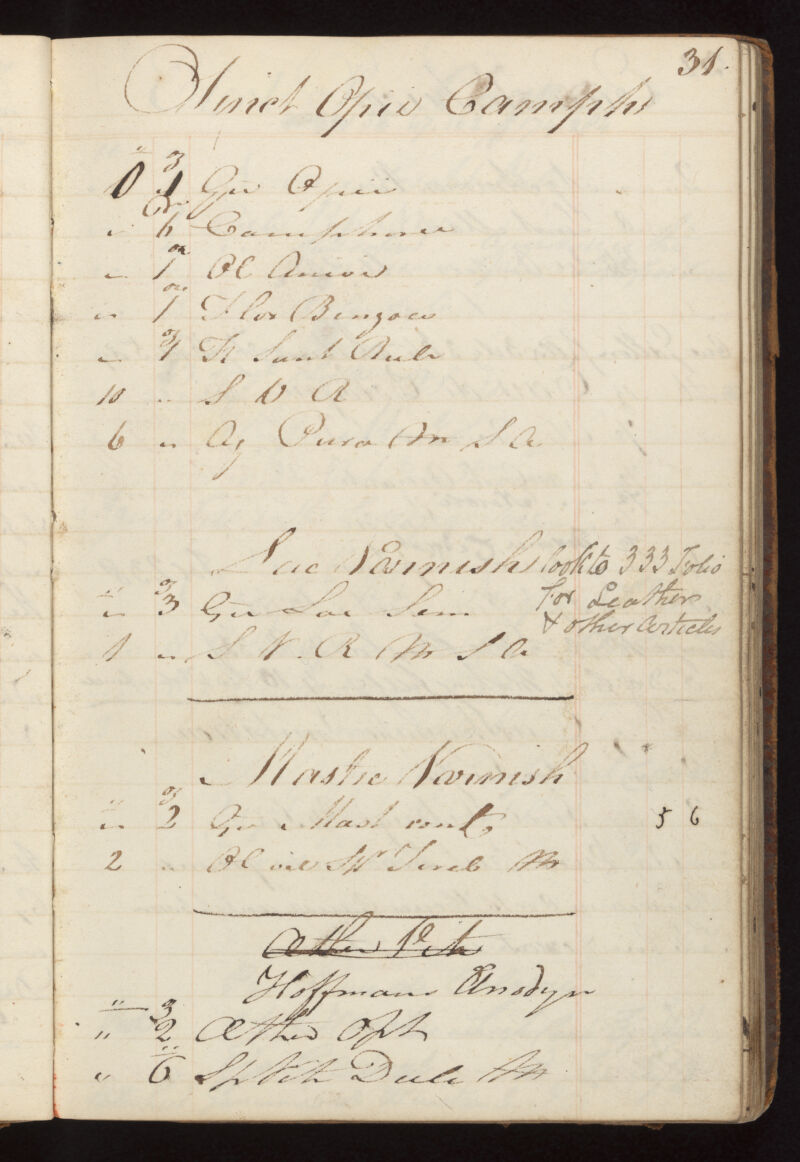 31.
Tinct Opii Camph
0 1 Gu Opii
" 6 Camphorae
" 1 Ol Anisi
" 1 Flor Benzoes
" Sant Rub
10 " S V R
6 " Aq Pura M S A
Lac Varnish look to 333 Folio
for Leathers
& other Articles
" 3 Gu Lac Sem
1 " S V R M S A
Mastic Varnish
" 2 Gu Mast 5 6
2 Ol Tereb M
Æther Vit
Hoffmans Anodyn
" 2 Æther Opt
" 6 Sp Vit Dulc M